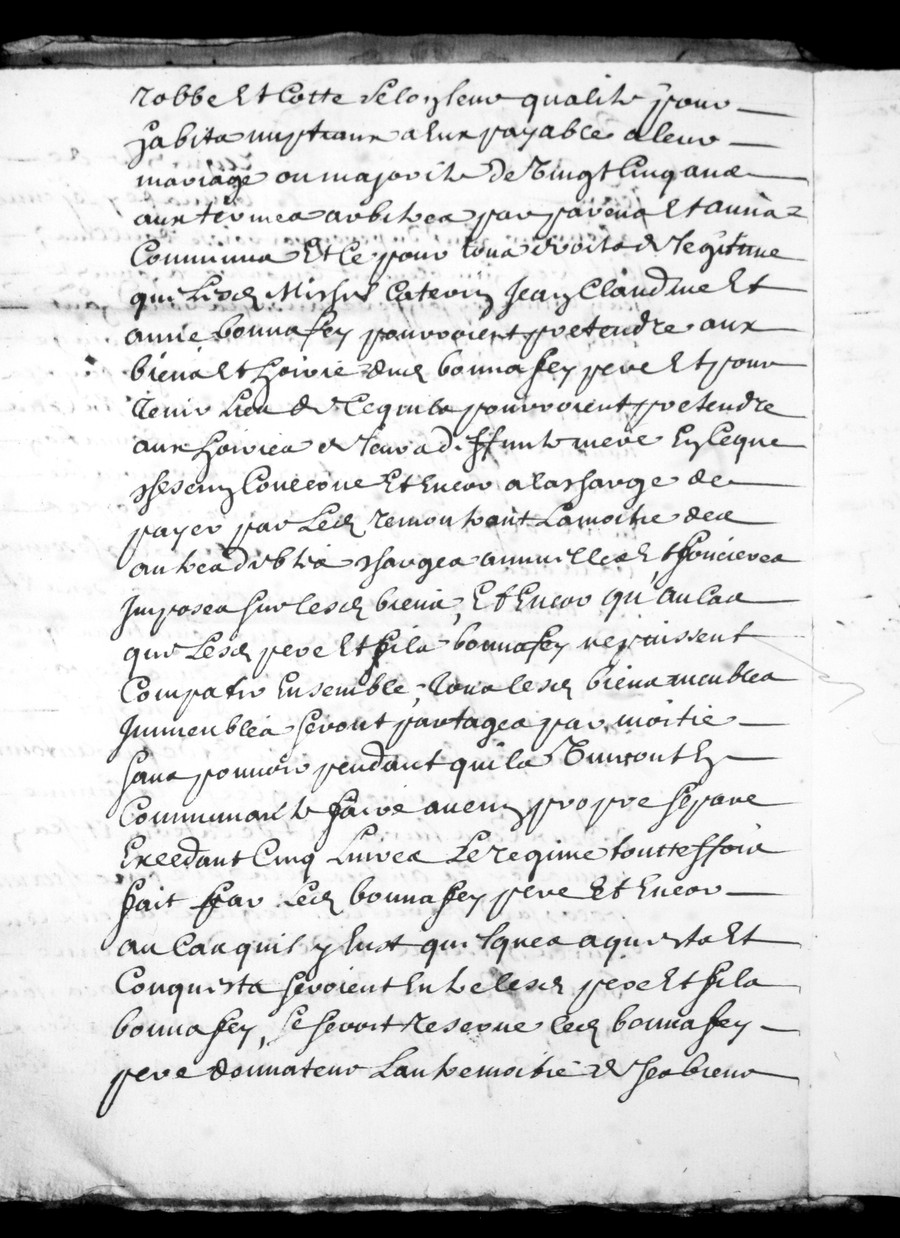 robbe Et Cotte selon leur qualite pour
habits nuptiaux a Eux payable a leur
mariage ou majorite de Vingt Cinq ans
aux termes arbitres par parens Et amis
Communs Et Ce pour tous droits de legitime
que Lesd Jean Claudine Et
anne bonnafey pourroient pretendre aux
biens Et hoirie dud bonnafey pere Et pour
tenir Lieu de Ce quils pourroient pretendre
aux hoiries de leurs deffunte mere En Ceque
Concerne Et Encor a la charge de
payer par Led remontrant La moitie des
autres debtes charges annuelles Et foncieres
Imposes sur lesd biens, Et Encor qu'au Cas
que Lesd pere Et fils bonnafey ne puissent
Compatir Ensemble, tous lesd biens meubles
Immeubles seront partages par moitie
sans pouvoir pendant quils Vivront En
Communaute faire aucun propre separe
Excedant Cinq Livres Le regime touttesfois
fait par Led bonnafey pere Et Encor
au Cas quil y Eust quelques aquests Et
Conquests seroient Entre lesd pere Et fils
bonnafey, se seroit reserve led bonnafey
pere donnateur Lautre moitie de ses biens